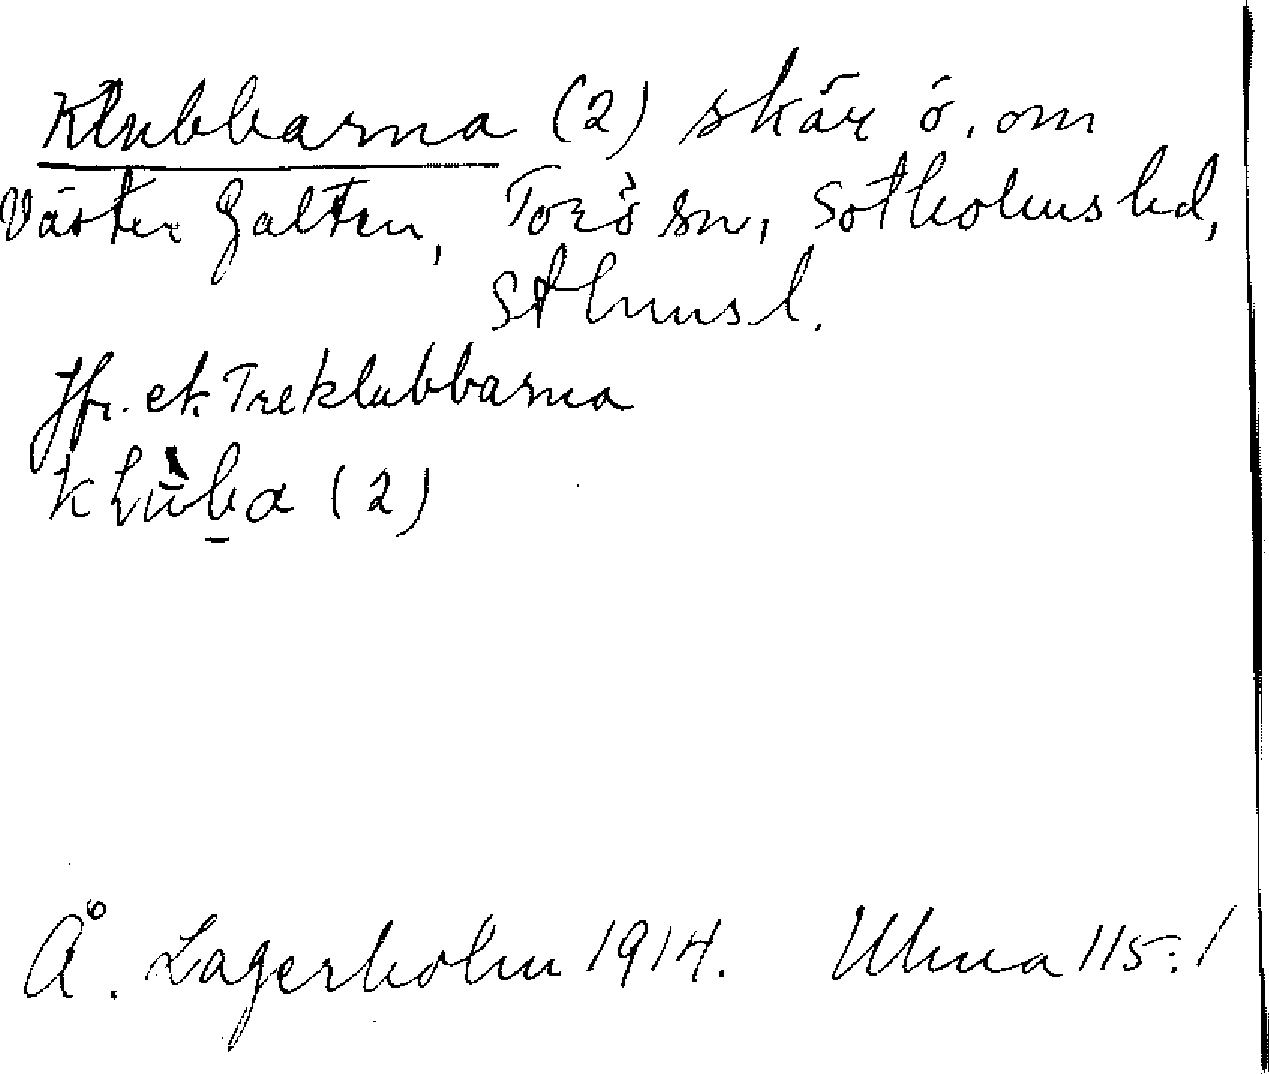 Klubbarna (2) skär ö. om
Väster Galten, Torö sn, Sotholms hd,
Sthms l.
Jfr. ek. Treklubbarna
klùba (2)
Å. Lagerholm 1914. Uhna 115:1